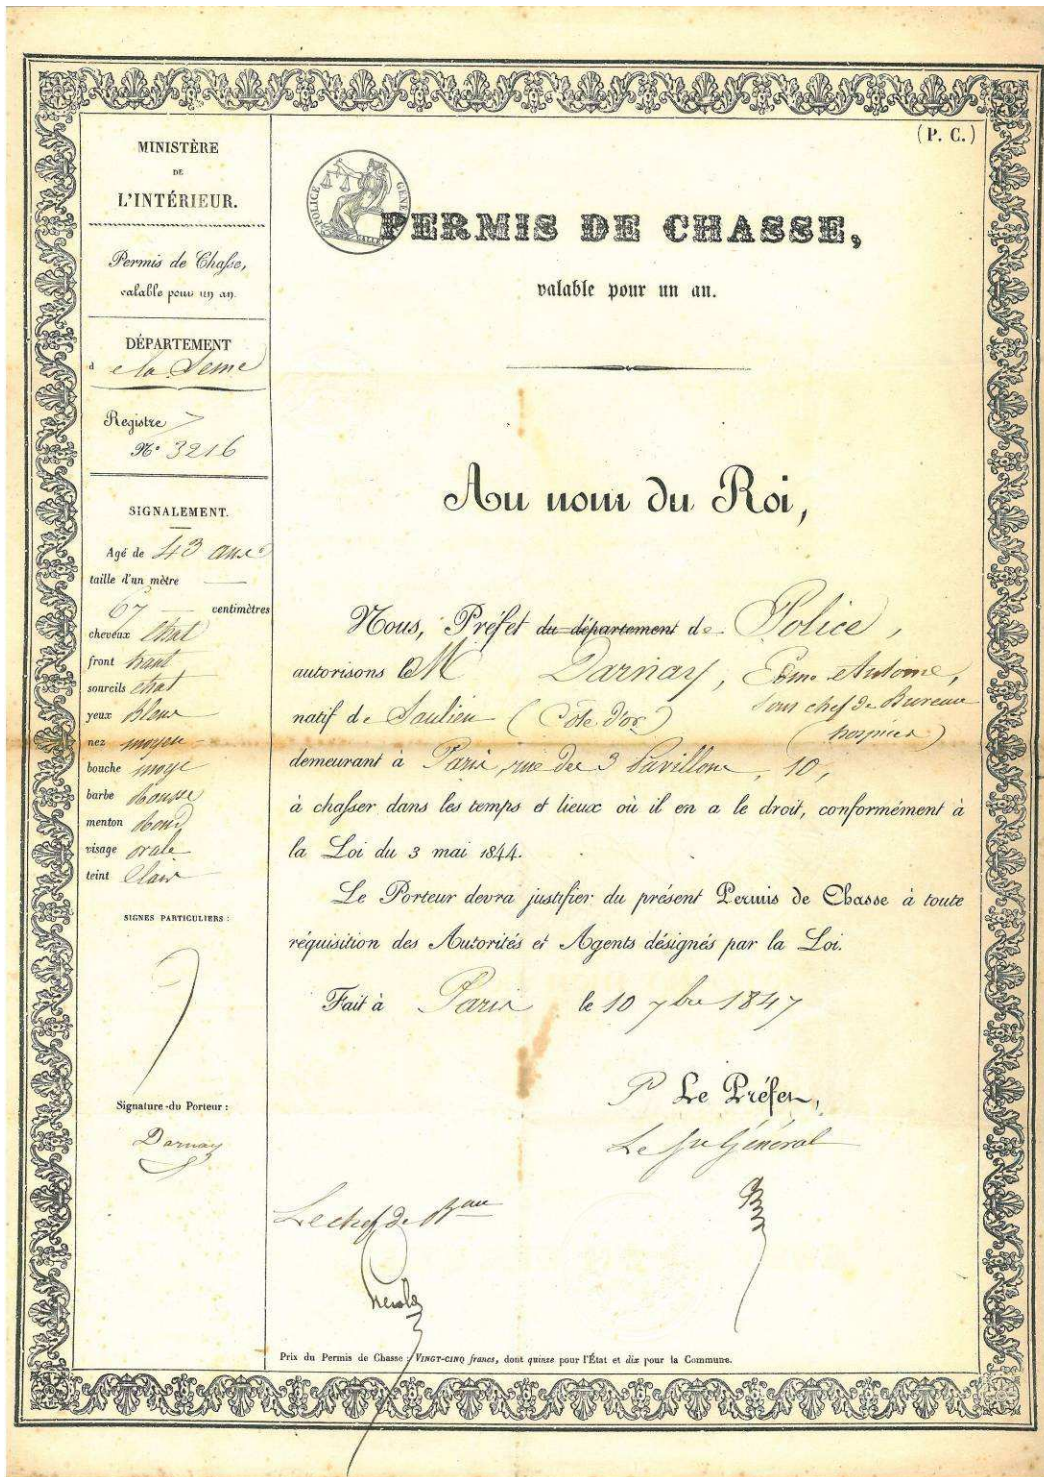 (P. C.)
MINISTÈRE
DE
L'INTÉRIEUR.
Permis de Chasse,
valable pour un an.
DÉPARTEMENT
de la Seine
Registre 7
N° 3216
SIGNALEMENT.
Agé de 43 ans
taille d'un mètre
67 centimètres
cheveux chat
front haut
sourcils chat
yeux bleus
nez moyen
bouche moye
barbe Rousse
menton Rond
visage ovale
teint Clair
SIGNES PARTICULIERS :
Signature du Porteur :
Darnay
POLICE GÉNÉ
PERMIS DE CHASSE,
valable pour un an.
Au nom du Roi,
Nous, Préfet du département de Police,
autorisons le M Darnay, Edme Antoine,
natif de Saulieu (Côte d'or) Sous chef de Bureau
(hospices)
demeurant à Paris, rue des 3 Pavillons, 10,
à chasser dans les temps et lieux où il en a le droit, conformément à
la Loi du 3 mai 1844.
Le Porteur devra justifier du présent Permis de Chasse à toute
réquisition des Autorités et Agents désignés par la Loi.
Fait à Paris le 10 7bre 1847
P Le Préfet,
Le Général
Le chef de Bau
Prix du Permis de Chasse : VINGT-CINQ francs, dont quinze pour l'État et dix pour la Commune.